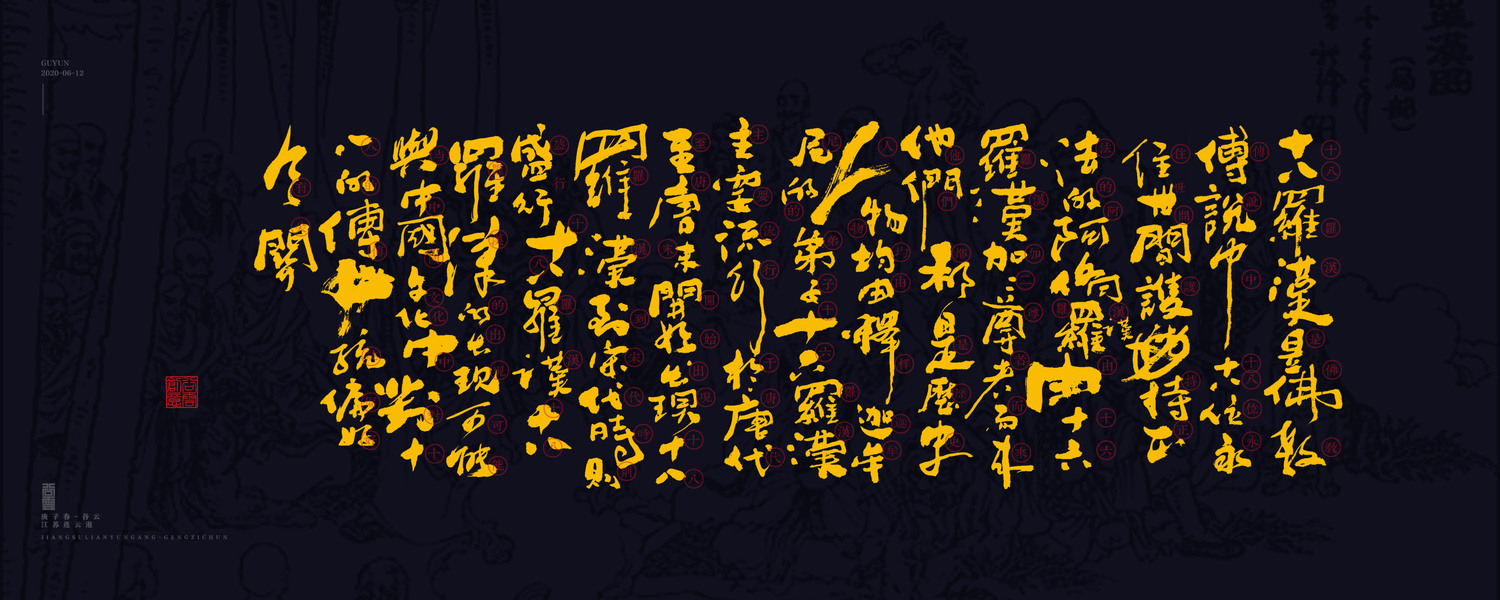 十八羅漢是佛教
傳說中十八位永
住世間護持正
法的阿羅漢由十六
羅漢加二尊者而來
他們都是歷史
人物均由釋迦牟
尼的弟子十六羅漢
主要流行於唐代
至唐末開始出現十八
羅漢到宋代時則
盛行十八羅漢十八
羅漢的出現可能
與中國文化中對十
八的傳統偏好
有關
GUYUN
2020-06-12
庚子春-谷云
江苏连云港
JIANGSULIANYUNGANG-GENGZICHUN